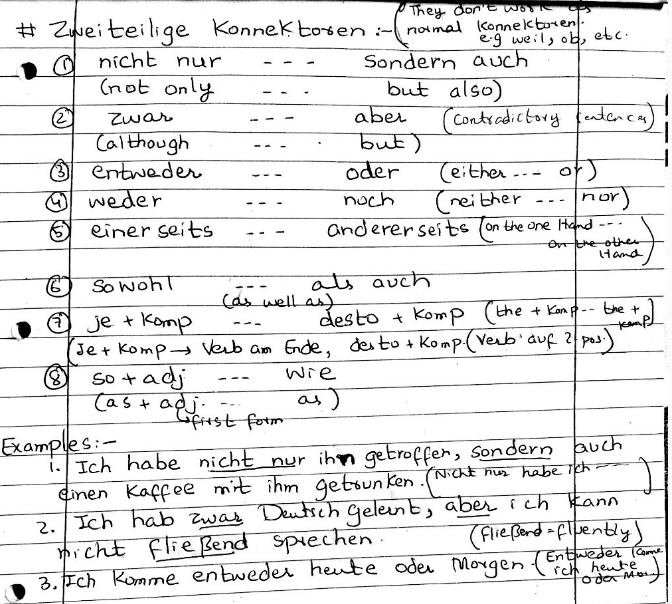 # Zweiteilige Konnektoren :- (They don't work as
normal Konnektoren.
e.g weil, ob, etc.
① nicht nur --- sondern auch
(not only --- but also)
② zwar --- aber (Contradictory sentences)
(although --- but)
③ entweder --- oder (either --- or)
④ weder --- noch (neither --- nor)
⑤ einerseits --- andererseits (on the one Hand ---
on the other
Hand)
⑥ sowohl --- als auch
(as well as)
⑦ je + Komp --- desto + Komp (the + Komp -- the +
Komp)
(Je + Komp → Verb am Ende, desto + Komp. (Verb auf 2 pos.)
⑧ so + adj --- wie
(as + adj. --- as)
↳ first form
Examples :-
1. Ich habe nicht nur ihn getroffen, sondern auch
einen Kaffee mit ihm getrunken. (Nicht nur habe ich ---)
2. Ich hab zwar Deutsch gelernt, aber ich kann
nicht fließend sprechen. (fließend = fluently)
3. Ich komme entweder heute oder Morgen. (Entweder komme
ich heute
oder Mor)